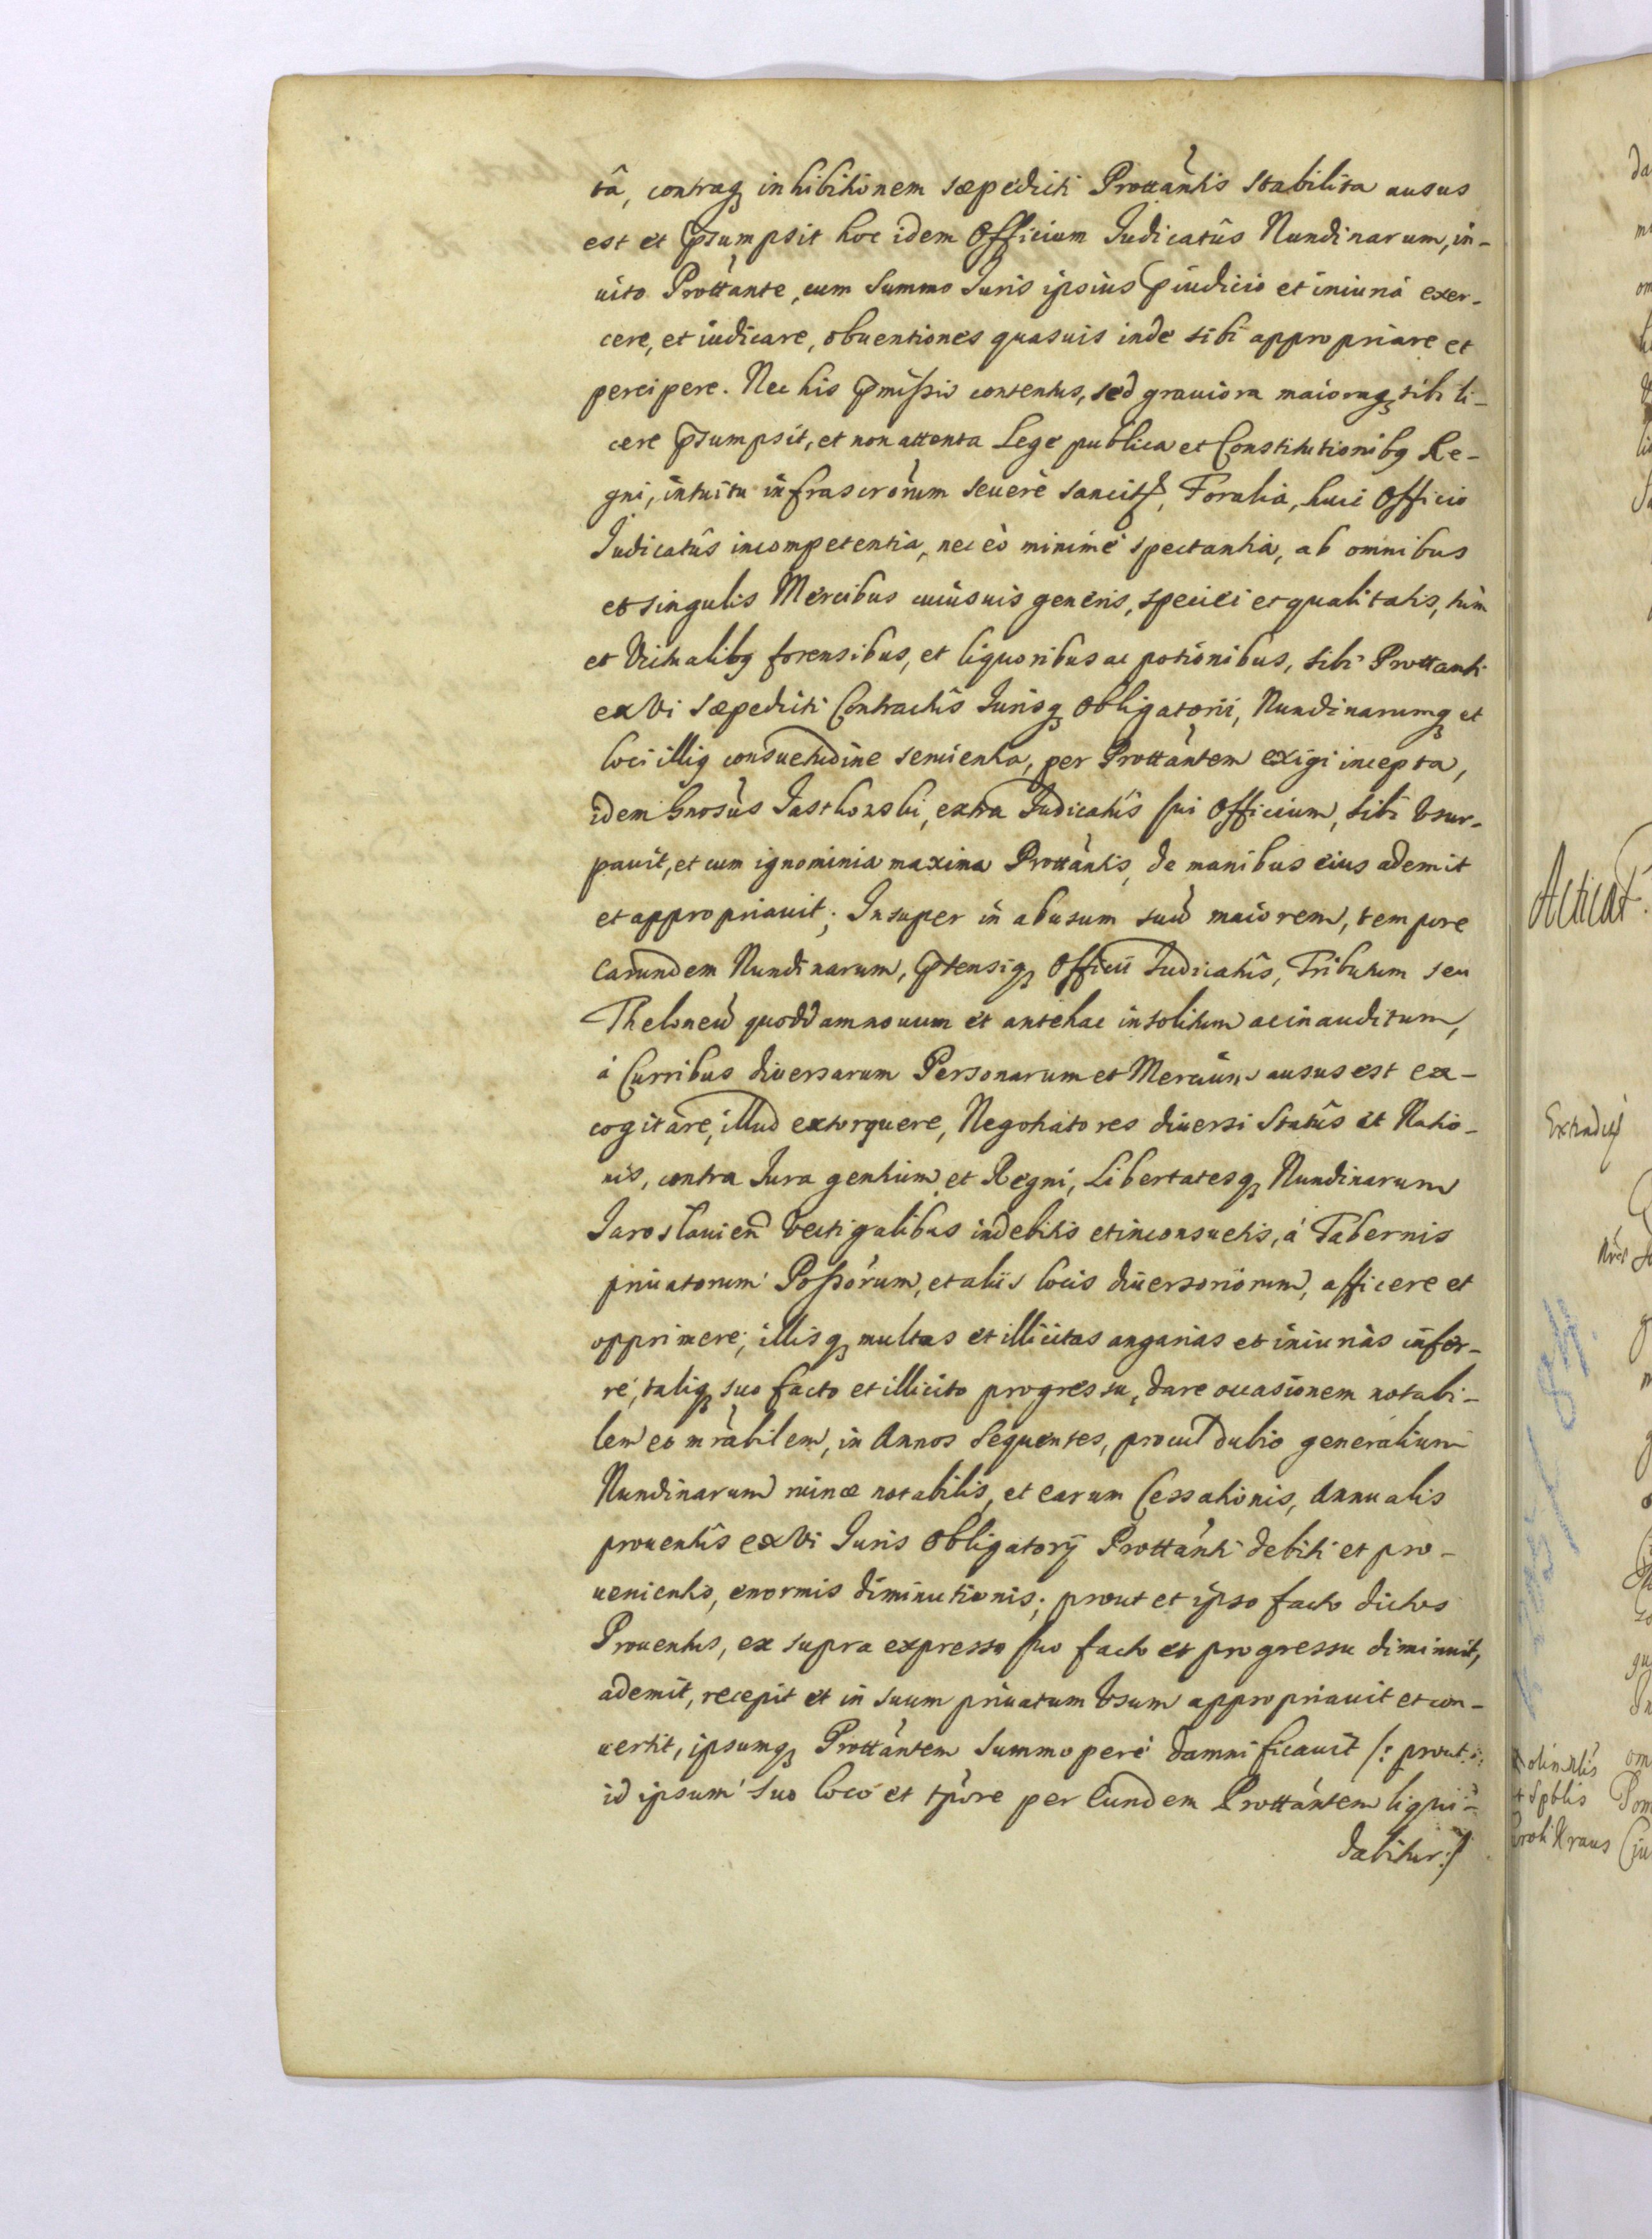 tâ, contraq₃ inhibitionem sæpedicti Prottãntis stabilita ausus
est et p̃sumpsit hoc idem Officium Judicatûs Nundinarum, in-
uito Prottãnte, cum summo Juris ipsius p̃iudicio et iniuriâ exer-
cere, et iudicare, obuentiones quasuis inde sibi appropriare et
percipere. Nec his p̃missis contentus, sed grauiora maioraq₃ sibi li-
cere p̃sumpsit, et non attenta Lege publica et Constitutionibq Re-
gni, intuitu infrascrõrum seuerè sancit, Foralia, huic Officio
Judicatûs incompetentia, nec eò minimè spectantia, ab omnibus
et singulis Mercibus cuiusuis generis, speciei et qualitatis, tùm
et Victualibq forensibus, et liquoribus ac potionibus, sibi Prottanti
ex Vi sæpedicti Contractûs Jurisq₃ Obligatorii, Nundinarumq₃ et
loci illiq consuetudine seruienta, per Prottãntem exigi incepta,
idem Gnosùs Jastkowski, extra Judicatûs sui Officium, sibi Vsur-
pauit, et cum ignominia maxima Prottãntis, de manibus eius ademit
et appropriauit; Insuper in abusum suũ maiorem, tempore
earundem Nundinarum, p̃tensiq₃ Officii Judicatûs, Tributum seu
Theloneũ quoddam nouum et antehac insolitum ac inauditum,
à Curribus diversarum Personarum et Mercium ausus est ex-
cogitare, illud extorquere, Negotiatores diuersi Statûs et Natio-
nis, contra Jura gentium et Regni, Libertatesq₃ Nundinarum
Jaroslauien̄ Vectigalibus indebitis et inconsuetis, à Tabernis
priuatorum Poßõrum, et aliis locis diuersoriorum, afficere et
opprimere; illisq₃ multas et illicitas angarias et iniurias infer-
re, taliq₃ suo facto et illicito progressu, dare occasionem notabi-
lem et mrãbilem, in Annos sequentes, procul dubio generalium
Nundinarum ruinæ notabilis, et earum Cessationis, Annualis
prouentûs ex Vi Juris Obligatorÿ Prottãnti debiti et pro-
uenientis, enormis diminutionis; prout et ipso facto dictos
Prouentus, ex supra expresso suo facto et progressu diminuit,
ademit, recepit et in suum priuatum Vsum appropriauit et con-
uertit, ipsumq₃ Prottãntem summopere damnificauit /: prout
id ipsum suo loco et tp̃ore per Eundem Prottãntem liqui-
dabitur :/
Acticat
Extradit